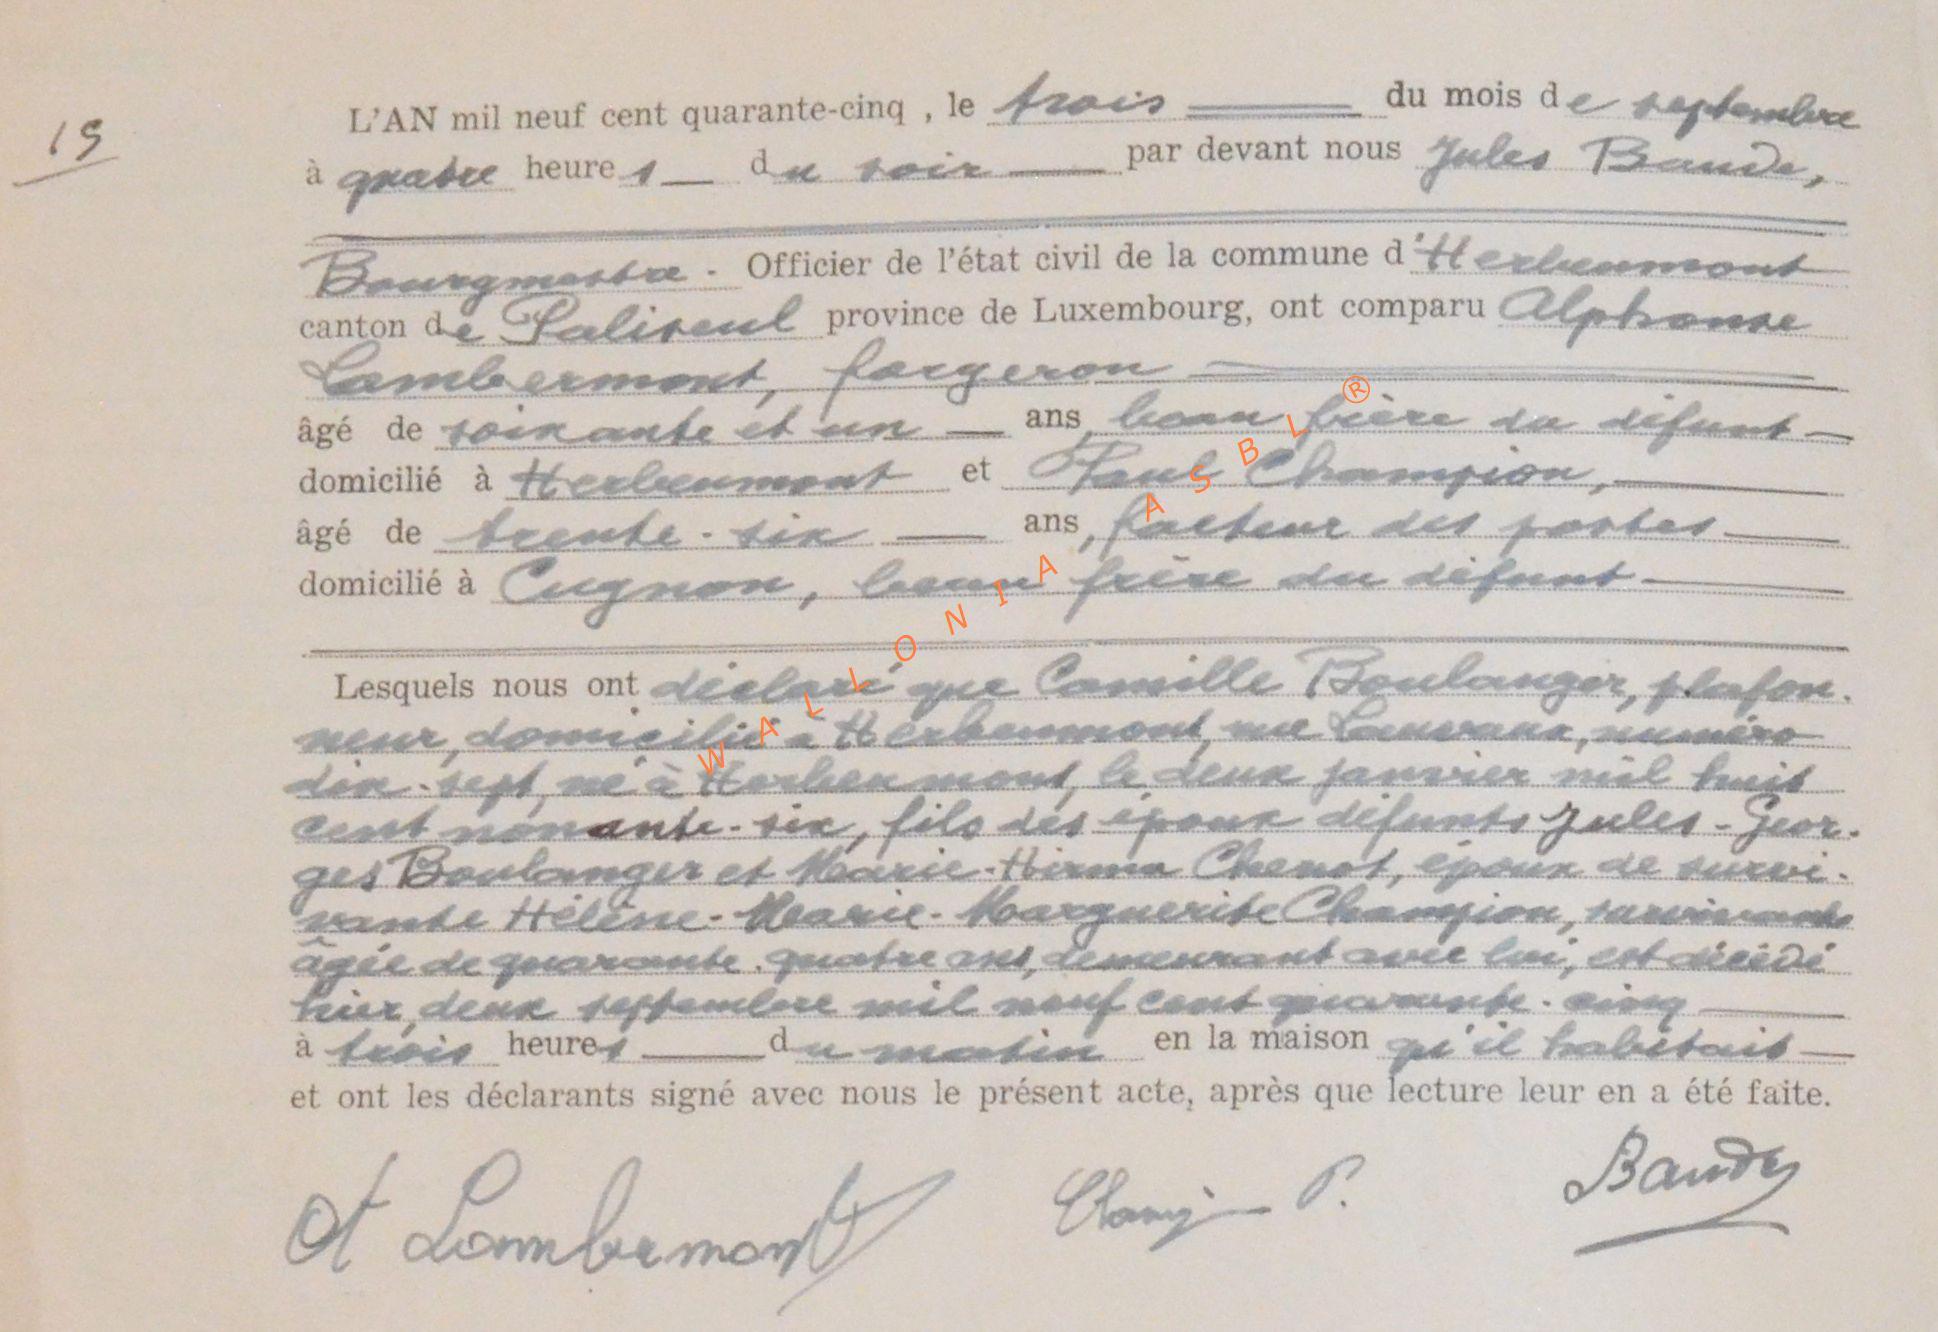 15
L'AN mil neuf cent quarante-cinq , le trois du mois de septembre
à quatre heures du soir par devant nous Jules Baude,
Bourgmestre - Officier de l'état civil de la commune d'Herbeumont
canton de Paliseul province de Luxembourg, ont comparu Alphonse
Lambermont, forgeron
âgé de soixante et un ans, beau frère du défunt
domicilié à Herbeumont et Paul Champion,
âgé de trente-six ans, facteur des postes
domicilié à Cugnon, beau frère du défunt
Lesquels nous ont déclaré que Camille Boulanger, plafon-
neur, domicilié à Herbeumont, rue Lauvaux, numéro
dix-sept, né à Herbeumont, le deux janvier mil huit
cent nonante-six, fils des époux défunts Jules-Geor-
ges Boulanger et Marie-Hirma Chenot, époux de survi-
vante Hélène-Marie-Marguerite Champion, survivante
âgée de quarante-quatre ans, demeurant avec lui, est décédé
hier, deux septembre mil neuf cent quarante-cinq
à trois heures du matin en la maison qu'il habitait
et ont les déclarants signé avec nous le présent acte, après que lecture leur en a été faite.
A Lambermont Champion P. Baude
WALLONIA ASBL ®